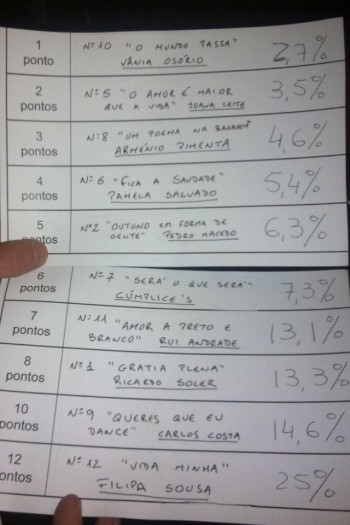 1 ponto Nº 10 "O MUNDO PASSA" 2,7%
VÂNIA OSÓRIO
2 pontos Nº 5 "O AMOR É MAIOR 3,5%
QUE A VIDA" JOANA LEITE
3 pontos Nº 8 "UM POEMA NA BAGAGEM" 4,6%
ARMÉNIO PIMENTA
4 pontos Nº 6 "FICA A SAUDADE" 5,4%
PAMELA SALVADO
5 pontos Nº2 "OUTONO EM FORMA DE 6,3%
GENTE" PEDRO MACEDO
6 pontos Nº 7 "SERÁ O QUE SERÁ" 7,3%
CÚMPLICE'S
7 pontos Nº 11 "AMOR A PRETO E 13,1%
BRANCO" RUI ANDRADE
8 pontos Nº 1 "GRATIA PLENA" 13,3%
RICARDO SOLER
10 pontos Nº 9 "QUERES QUE EU 14,6%
DANCE" CARLOS COSTA
12 pontos Nº 12 "VIDA MINHA" 25%
FILIPA SOUSA